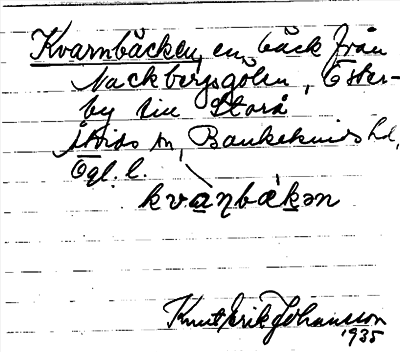 Kvarnbäcken, en bäck från
Nackbergsgölen, Öster-
by till Storå
Åtvids sn, Bankekinds hd,
Ögl. l.
kvaɳbækən
Knut Erik Johansson
1935